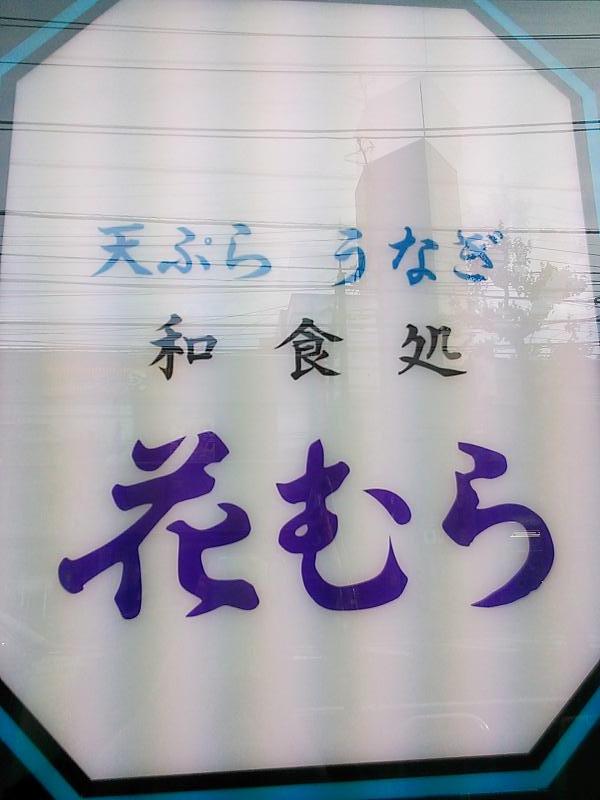 天ぷら うなぎ
和食処
花むら